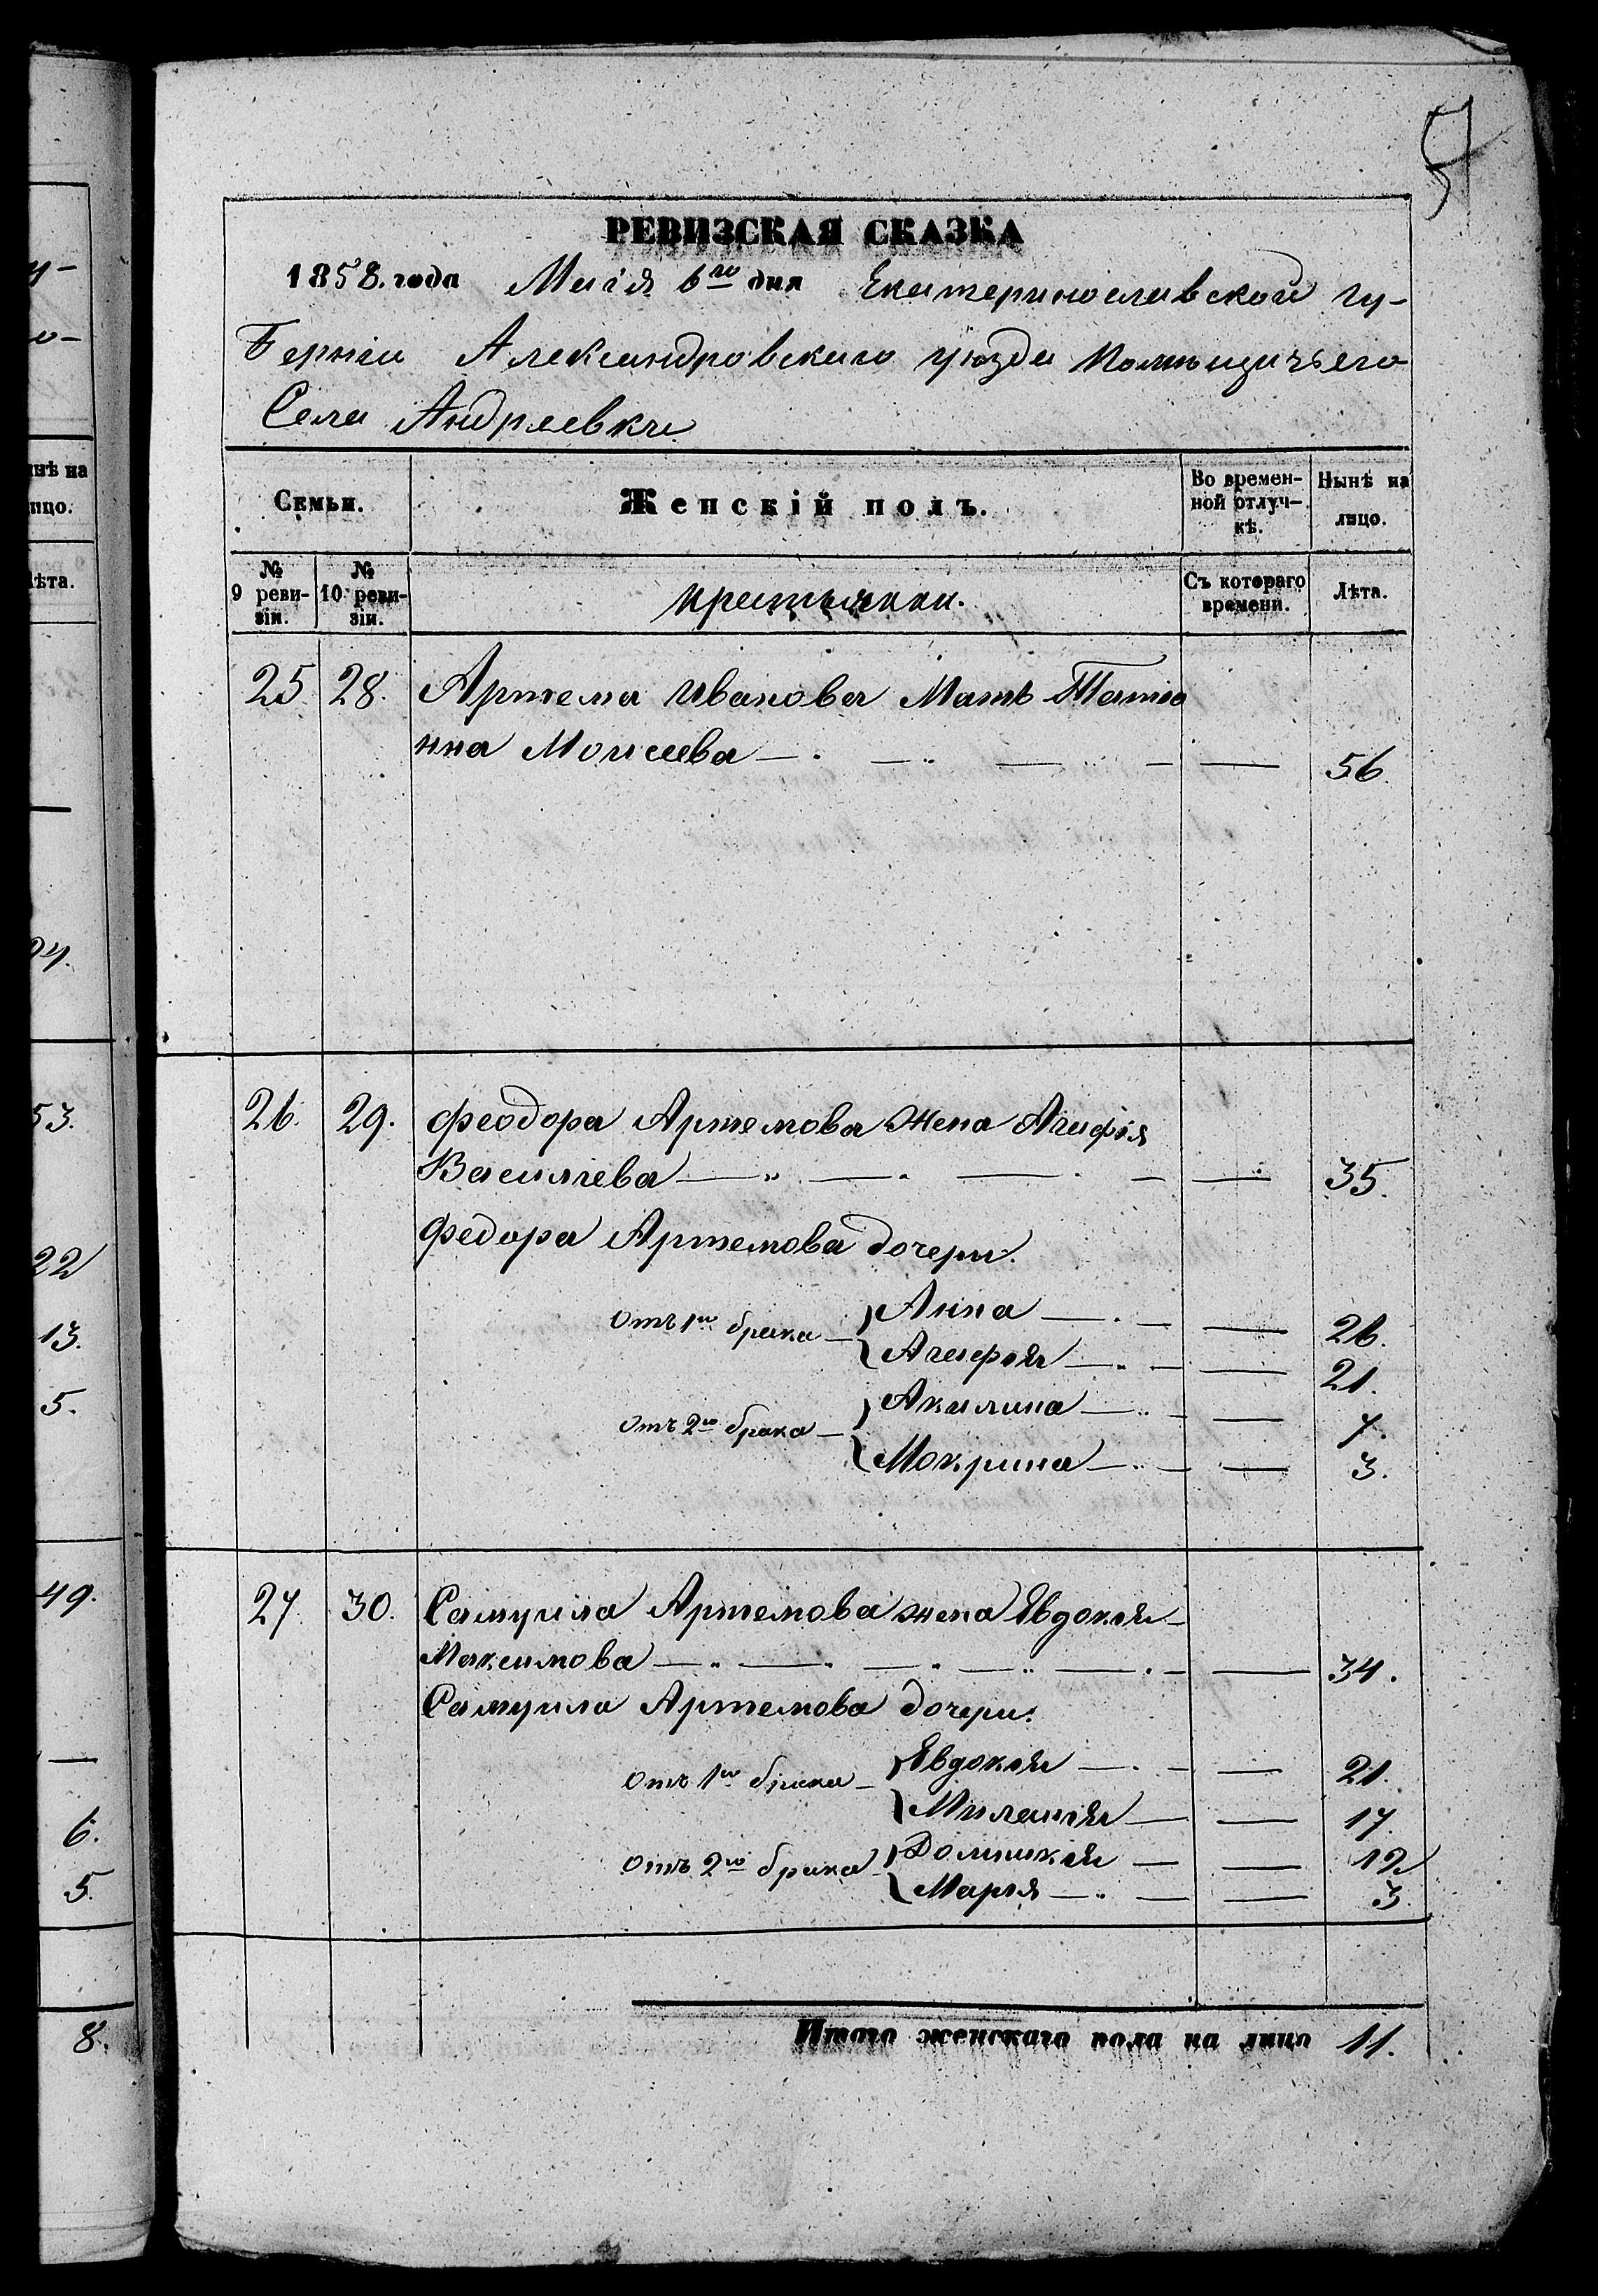 51
РЕВИЗСКАЯ СКАЗКА
1858. года Маія 6го дня Екатеринославской гу-
берніи Александровскаго уѣзда помѣщичьяго
Села Андреевки
Семьи.
Женскій полъ.
Во времен-
ной отлуч-
кѣ.
Нынѣ на
лицо.
№
9 реви-
зіи.
№
10 реви-
зіи.
крестьянки.
Съ котораго
времени.
Лѣта.
25 28. Артема Иванова Мать Татіа
нна Моисеева — — — — — 56.
26. 29. Феодора Артемова жена Агафія
Васильева — — — — — 35.
Федора Артемова дочери.
Отъ 1го брака — Анна — — — 26.
Агафія — — — 21.
Отъ 2го брака — Акилина — — — 7.
Мокрина — — — 3.
27 30. Самуила Артемова жена Евдокія
Максимова — — — — — — — 34.
Самуила Артемова дочери:
Отъ 1го брака — Евдокія — — — 21.
Миланія — — 17.
Отъ 2го брака Домникія — — 12
Марія — — — 3.
Итого женскаго пола на лицо 11.
нѣ на
ицо.
ѣта.
53.
22
13.
5.
49.
6.
5.
8.